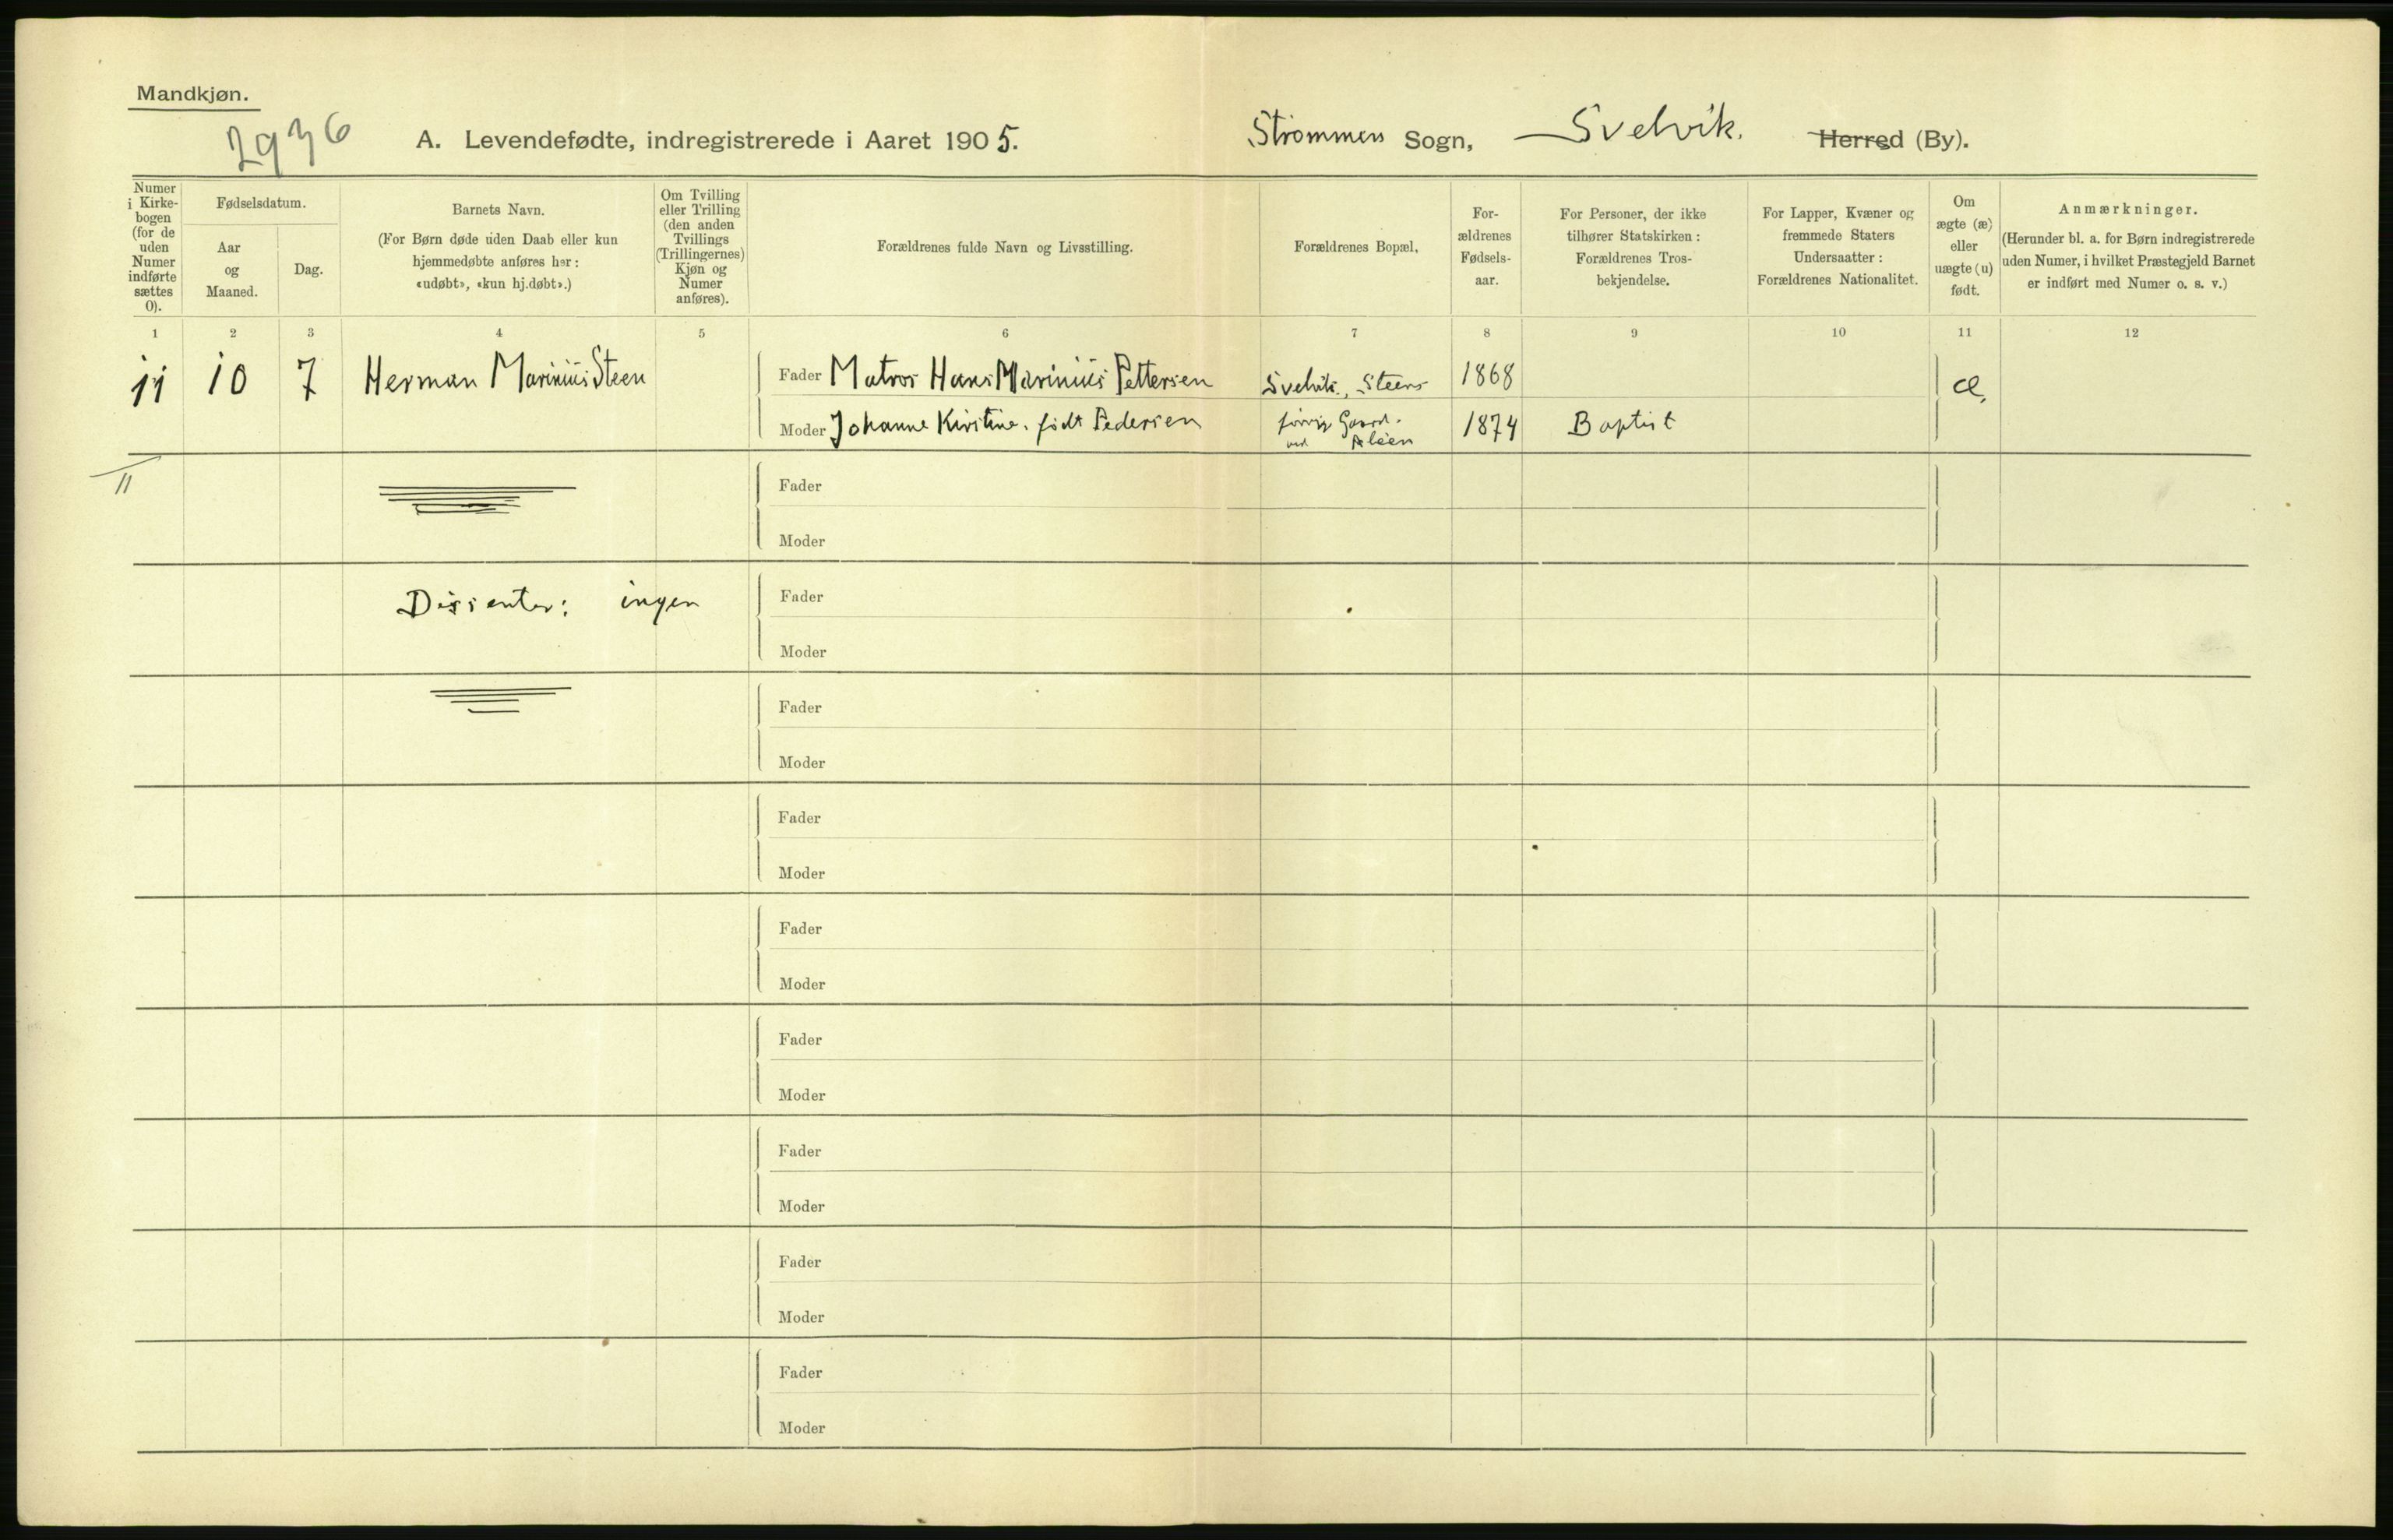 Mandkjøn.
2936
A. Levendefødte, indregistrerede i Aaret 1905. Strømmen Sogn, Svelvik. Herred (By).
Numer
i Kirke-
bogen
(for de
uden
Numer
indførte
sættes
0).
Fødselsdatum.
Aar
og
Maaned.
Dag.
Barnets Navn.
(For Børn døde uden Daab eller kun
hjemmedøbte anføres her:
«udøbt», «kun hj.døbt».)
Om Tvilling
eller Trilling
(den anden
Tvillings
(Trillingernes)
Kjøn og
Numer
anføres).
Forældrenes fulde Navn og Livsstilling.
Forældrenes Bopæl.
For-
ældrenes
Fødsels-
aar.
For Personer, der ikke
tilhører Statskirken:
Forældrenes Tros-
bekjendelse.
For Lapper, Kvæner og
fremmede Staters
Undersaatter:
Forældrenes Nationalitet.
Om
ægte (æ)
eller
uægte (u)
født.
Anmærkninger.
(Herunder bl. a. for Børn indregistrerede
uden Numer, i hvilket Præstegjeld Barnet
er indført med Numer o. s. v.)
1 2 3 4 5 6 7 8 9 10 11 12
11 10 7 Herman Marinius Steen Fader Matros Hans Marinius Pettersen Svelvik, Steens 1868 æ.
Moder Johanne Kirstine, født Pedersen Gaard. 1874 Baptist
ved Aléen
11
Fader
Moder
Dissenter: ingen Fader
Moder
Fader
Moder
Fader
Moder
Fader
Moder
Fader
Moder
Fader
Moder
Fader
Moder
Fader
Moder